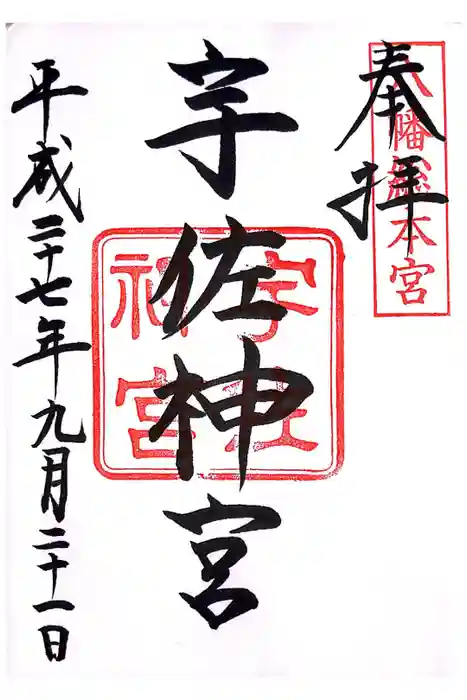 奉拝
八幡總本宮
宇佐神宮
宇佐神宮
平成二十七年九月二十一日